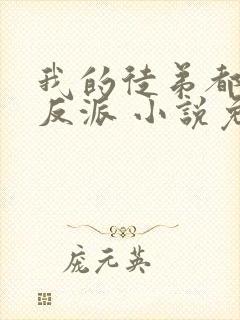 我的徒弟都
反派 小說免
庞元英